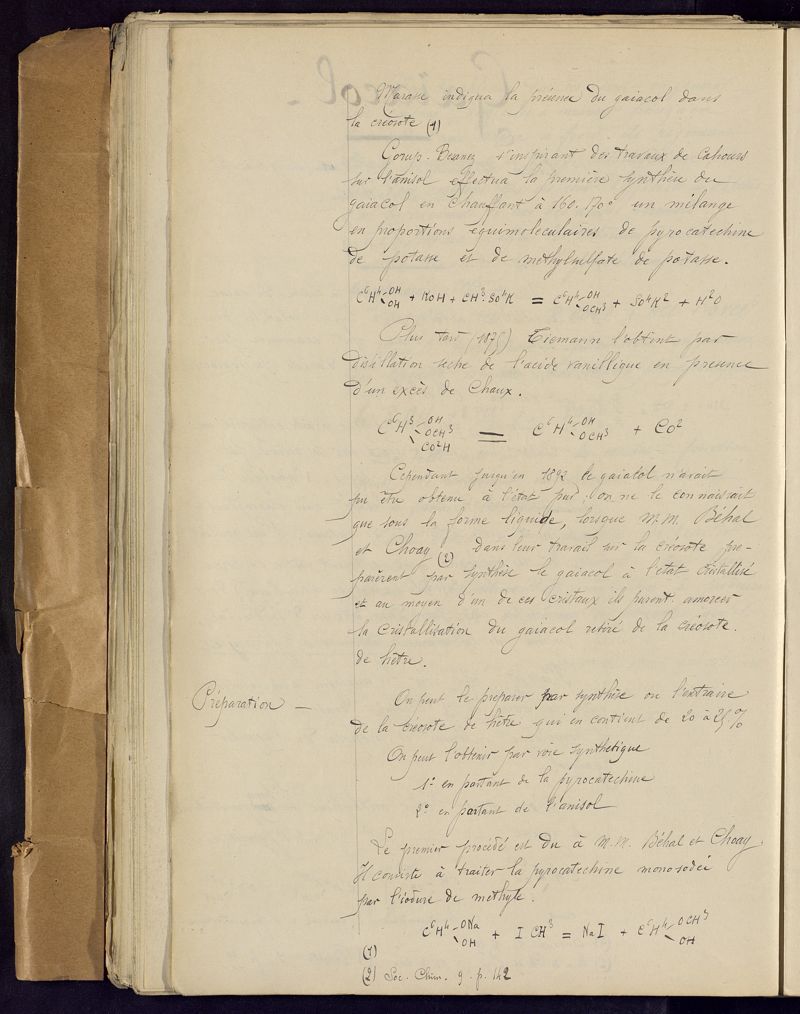 Marasse indiqua la présence du gaiacol dans
la créosote (1)
Gorup-Besanez s'inspirant des travaux de Cahours
sur l'anisol effectua la première synthèse du
gaiacol en chauffant à 160.170° un mélange
en proportions équimoleculaires de pyrocatechine
de potasse et de méthylsulfate de potasse.
C⁶H⁴ OH OH + KOH + CH³.SO⁴K = C⁶H⁴ OH OCH³ + SO⁴K² + H²O
Plus tard (1875) Tiemann l'obtint par
distillation sèche de l'acide vanillique en presence
d'un excès de chaux.
C⁶H³ OH OCH³ CO²H = C⁶H⁴ OH OCH³ + CO²
Cependant jusqu'en 1892 le gaiacol n'avait
pu être obtenu à l'état pur; on ne le connaissait
que sous la forme liquide, lorsque M.M. Béhal
et Choay (2) dans leur travail sur la créosote pré-
parèrent par synthèse le gaiacol à l'état cristallisé
et au moyen d'un de ces cristaux ils purent amorcer
la cristallisation du gaiacol retiré de la créosote
de hêtre.
Préparation —
On peut le préparer par synthèse ou l'extraire
de la créosote de hêtre qui en contient de 20 à 25%
On peut l'obtenir par voie synthétique
1° en partant de la pyrocatechine
2° en partant de l'anisol
Le premier procédé est du à M.M. Béhal et Choay.
Il consiste à traiter la pyrocatechine monosodée
par l'iodure de méthyle.
C⁶H⁴ ONa OH + I CH³ = NaI + C⁶H⁴ OCH³ OH
(1)
(2) Soc. Chim. 9. p. 142